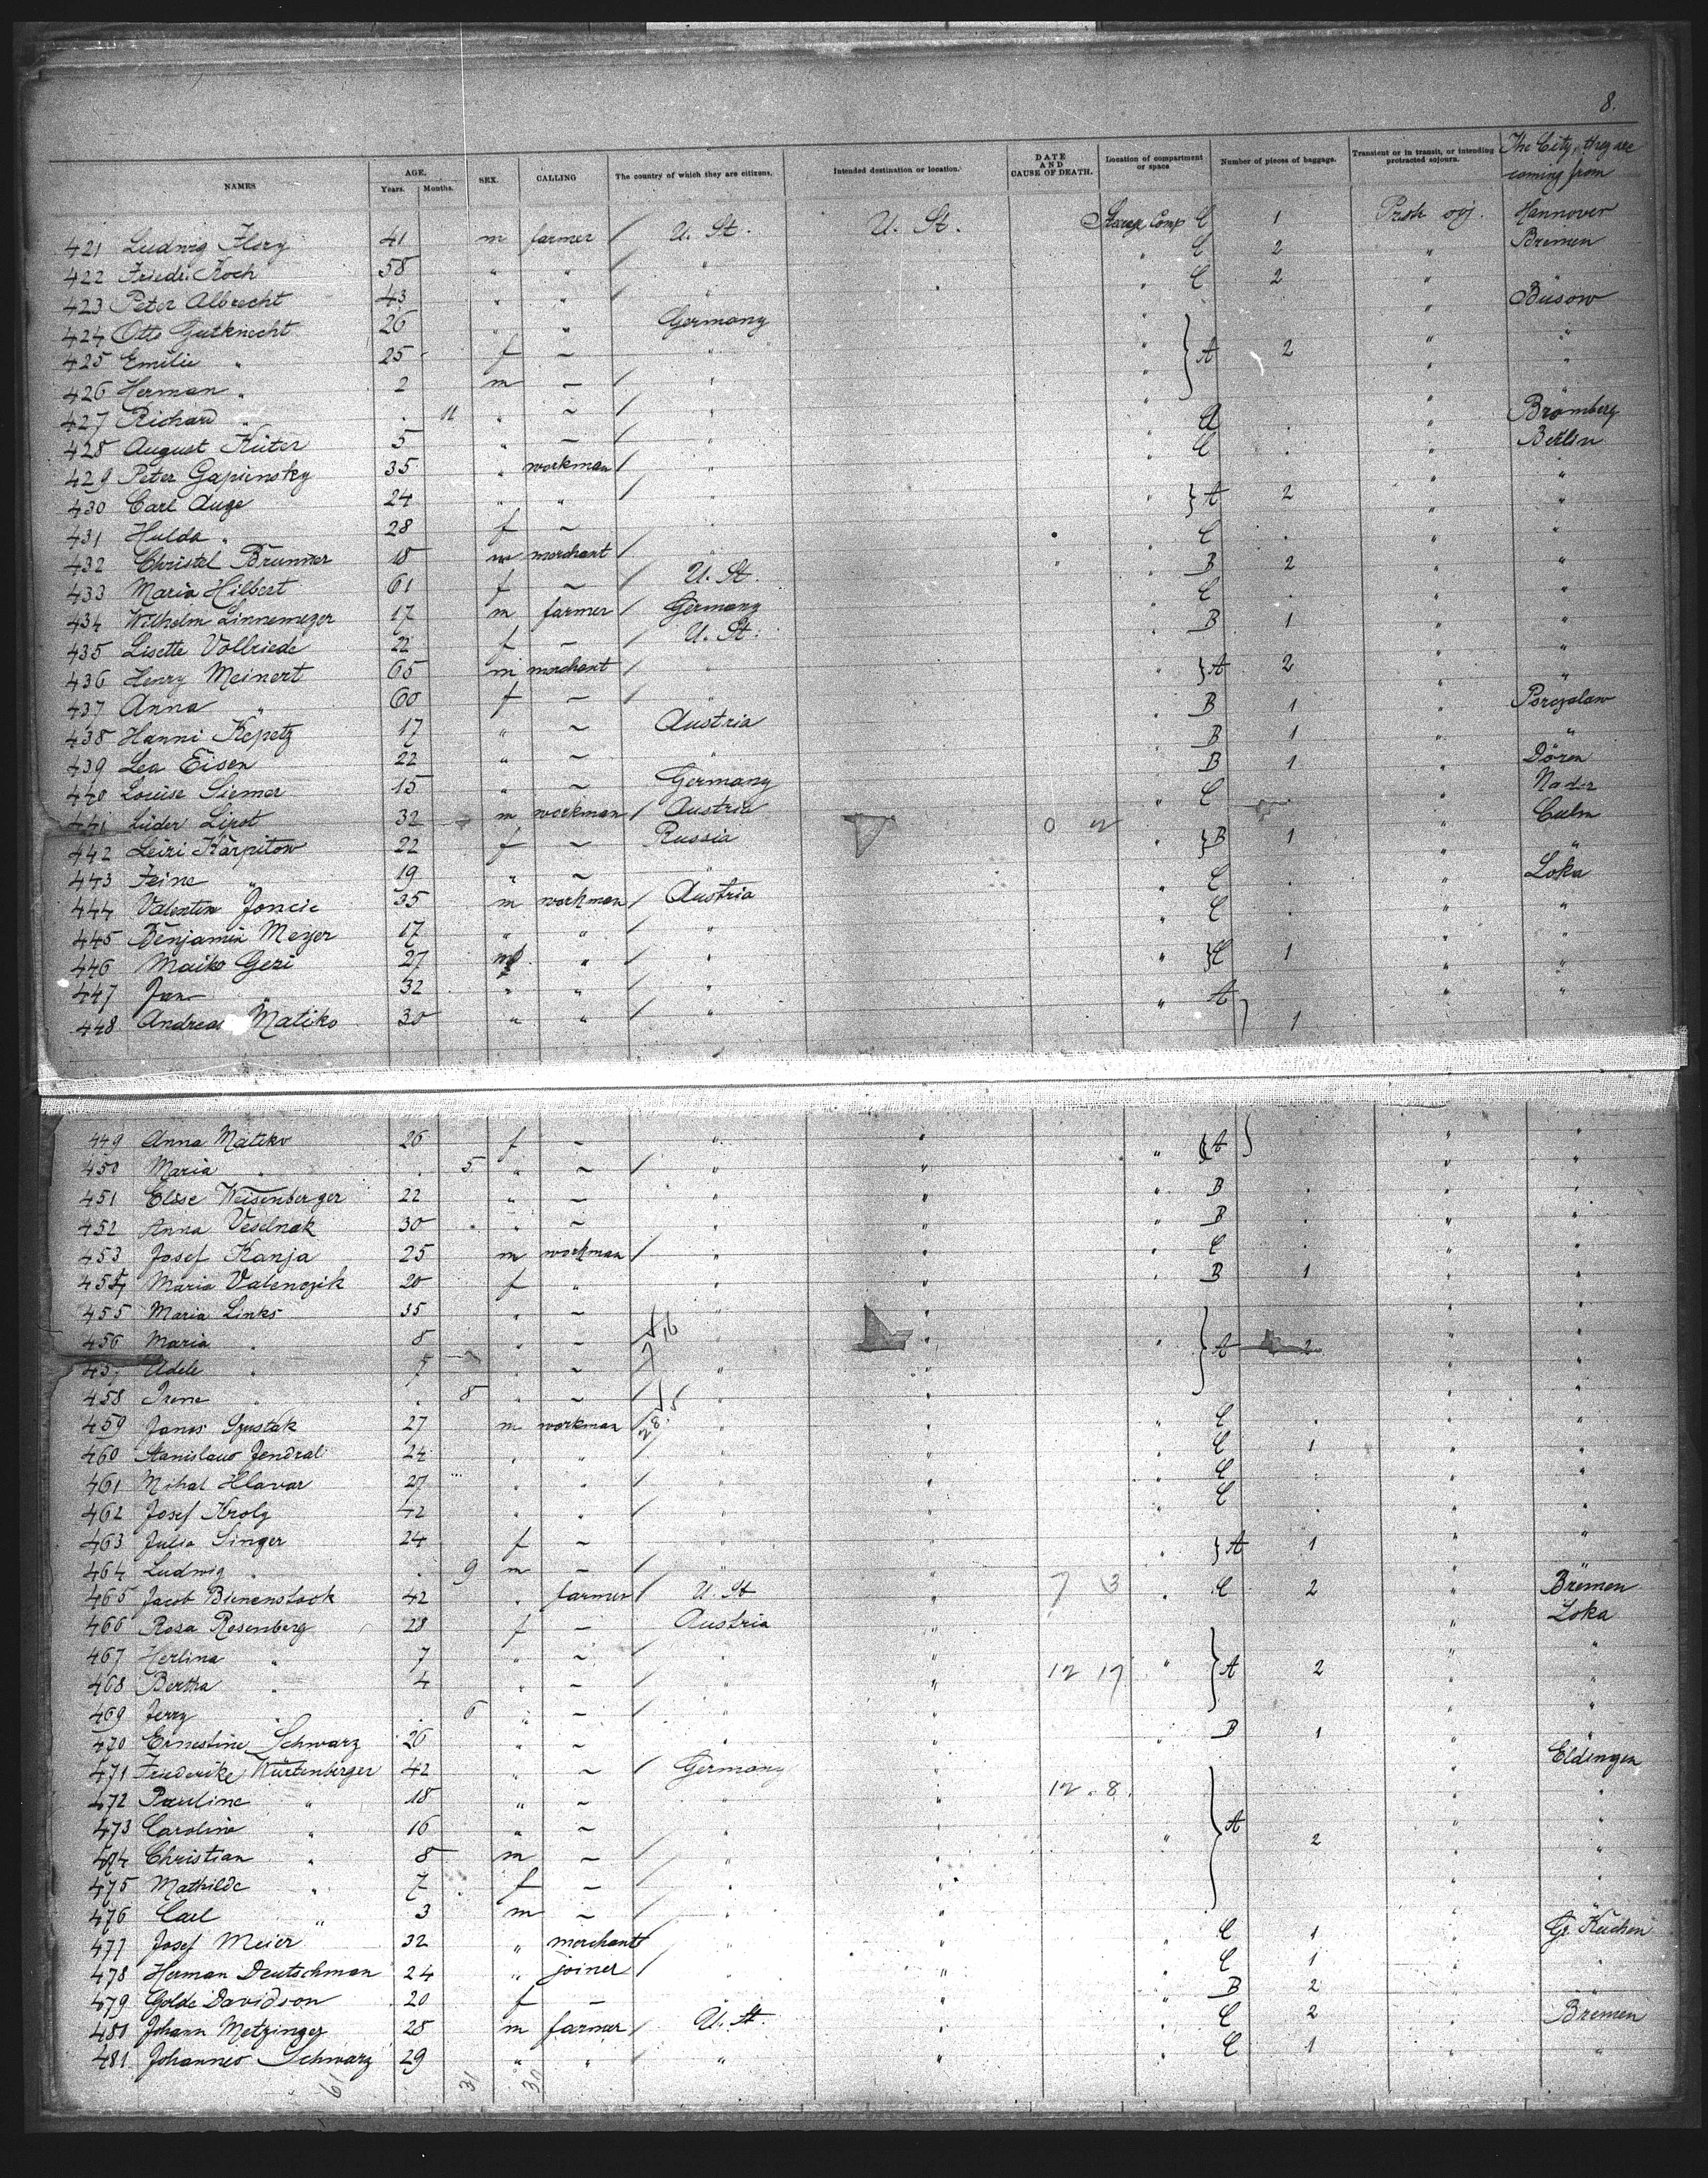 8.
NAMES AGE. Years. Months. SEX. CALLING The country of which they are citizens. Intended destination or location. DATE AND CAUSE OF DEATH. Location of compartment or space Number of pieces of baggage. Transient or in transit, or intending protracted sojourn. The City, they are coming from
421 Ludwig Flory 41 m farmer / U. St. U. St. Comp C 1 Hannover
422 Friedr. Koch 58 " " / " " C 2 " Bremen
423 Peter Albrecht 43 " " / " " C 2 "
424 Otto Gutknecht 26 " " Germany " " Busow
425 Emilie " 25 f – " " A 2 " "
426 Herman " 2 m – / " " " "
427 Richard " . 11 " – / " " "
428 August Küter 5 " – / " " A . " Bromberg
429 Peter Gapinsky 35 " workman / " " C . " Berlin
430 Carl Auge 24 " " / " " A 2 " "
431 Hulda " 28 f – " " "
432 Christel Brunner 18 m merchant / " " C . " "
433 Maria Hilbert 61 f – / U. St. " B 2 " "
434 Wilhelm Linnemeyer 17 m farmer / Germany " C . " "
435 Lisette Vollriede 22 f – / U. St. " B 1 " "
436 Henry Meinert 65 m merchant / " " A 2 " "
437 Anna " 60 f – / " " "
438 Hanni Kepetz 17 " – Austria " B 1 "
439 Lea Eisen 22 " – " " B 1 " "
440 Louise Siemer 15 " – Germany " B 1 " Dören
441 Lüder Lipot 32 m workman / Austria " C . "
442 Leizi Karpitow 22 f – Russia " B 1 " Culm
443 Feine " 19 " – " " "
444 Valentin Joncic 35 m workman / Austria " C . " Loka
445 Benjamin Meyer 17 " " / " " C . " "
446 Maiko Geri 27 " / " " C 1 " "
447 Jan " 32 " " / " " "
448 Andreas Matiko 30 " " / " " A 1 " "
449 Anna Matiko 26 f – " " A " "
450 Maria " . 5 " – / " " " "
451 Elise Weisenberger 22 " – " " B . " "
452 Anna Veselnak 30 " – " " B . " "
453 Josef Kanja 25 m workman / " " C . " "
454 Maria Valenczik 20 f " " " B 1 " "
455 Maria Links 35 " – " " " "
456 Maria " 8 " – " " A 2 " "
457 Adele " 5 " – " " " "
458 Irene " . 8 " – / " " " "
459 Janos Szustak 27 m workman / " " C . " "
460 Stanislaus Jendral 24 " " / " " C 1 " "
461 Mihal Hlavar 27 " " / " " C . " "
462 Josef Kroly 42 " " / " " C . " "
463 Julia Singer 24 f – " " A 1 " "
464 Ludwig " . 9 m – / " " "
465 Jacob Bienenstock 42 " farmer / U. St 7 3 C 2 " Bremen
466 Rosa Rosenberg 28 f – Austria " " Loka
467 Herlina " 7 " – / " " " "
468 Bertha " 4 " – / " " 12 17 A 2 " "
469 Jerry " . 6 " – / " " "
470 Ernestine Schwarz 26 " – " " B 1 " "
471 Friederike Würtenberger 42 " – / Germany " " Eldingen
472 Pauline " 18 " – " " 12 . 8. " "
473 Caroline " 16 " – " " A 2 " "
474 Christian " 8 m – / " " " "
475 Mathilde " 7 f – / " " " "
476 Carl " 3 m – / " " " "
477 Josef Meier 32 " merchant " " C 1 " Gr. Küchen
478 Herman Deutschman 24 " joiner / " " C 1 " "
479 Golde Davidson 20 f – " " B 2 "
480 Johann Metzinger 28 m farmer / U. St. " C 2 " Bremen
481 Johannes Schwarz 29 " " " " C 1 " "
61 31 30